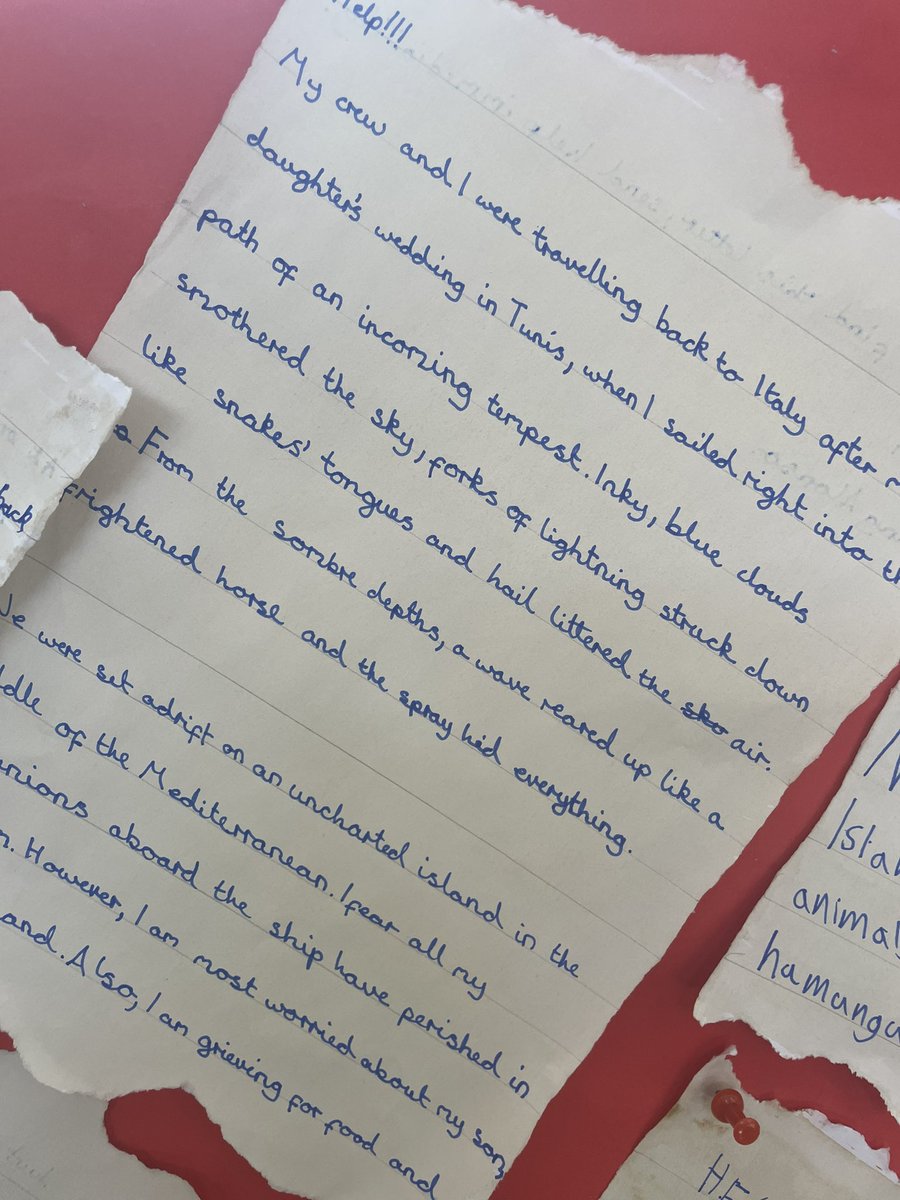 Help!!!
My crew and I were travelling back to Italy after
daughter's wedding in Tunis, when I sailed right into th
path of an incoming tempest. Inky, blue clouds
smothered the sky, forks of lightning struck down
like snakes' tongues and hail littered the sko air.
From the sombre depths, a wave reared up like a
frightened horse and the spray hid everything.
We were set adrift on an uncharted island in the
ddle of the Mediterranean. I fear all my
anions aboard the ship have perished in
m. However, I am most worried about my son,
and. Also, I am grieving for food and
back
Islan
animal
hamungu
HE